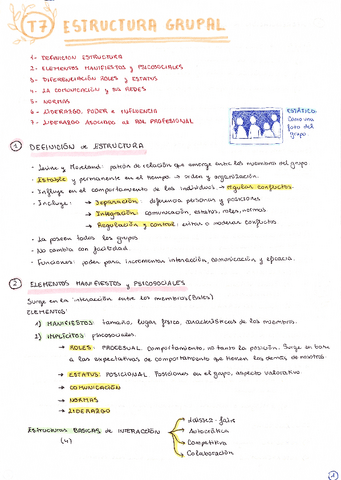 T7 ESTRUCTURA GRUPAL
1- DEFINICIÓN ESTRUCTURA
2- ELEMENTOS MANIFIESTOS Y PSICOSOCIALES
3- DIFERENCIACIÓN ROLES Y ESTATUS
4- LA COMUNICACIÓN Y SUS REDES
5- NORMAS
6- LIDERAZGO, PODER E INFLUENCIA
7- LIDERAZGO ASOCIADO AL ROL PROFESIONAL
ESTÁTICO:
Como una
foto del
grupo
1 DEFINICIÓN DE ESTRUCTURA
- Levine y Moreland: patrón de relación que emerge entre los miembros del grupo
- Estable y permanente en el tiempo → orden y organización.
- Influye en el comportamiento de los individuos → regular conflictos.
- Incluye: → Separación: diferencia personas y posiciones
→ Integración: comunicación, estatus, roles, normas
→ Regulación y control: evitan o moderan conflictos
- La poseen todos los grupos
- No cambia con facilidad
- Funciones: poder para incrementar interacción, comunicación y eficacia.
2 ELEMENTOS MANIFIESTOS Y PSICOSOCIALES
Surge en la interacción entre los miembros (Bales)
ELEMENTOS:
1) MANIFIESTOS: tamaño, lugar físico, características de los miembros.
2) IMPLÍCITOS: psicosociales.
→ ROLES: PROCESUAL. Comportamiento, no tanto la posición. Surge en base
a las expectativas de comportamiento que tienen los demás de nosotros.
→ ESTATUS: POSICIONAL. Posiciones en el grupo, aspecto valorativo
→ COMUNICACIÓN
→ NORMAS
→ LIDERAZGO
Estructuras BÁSICAS de INTERACCIÓN
(4)
Laissez-faire
Autocrática
Competitiva
Colaboración
1